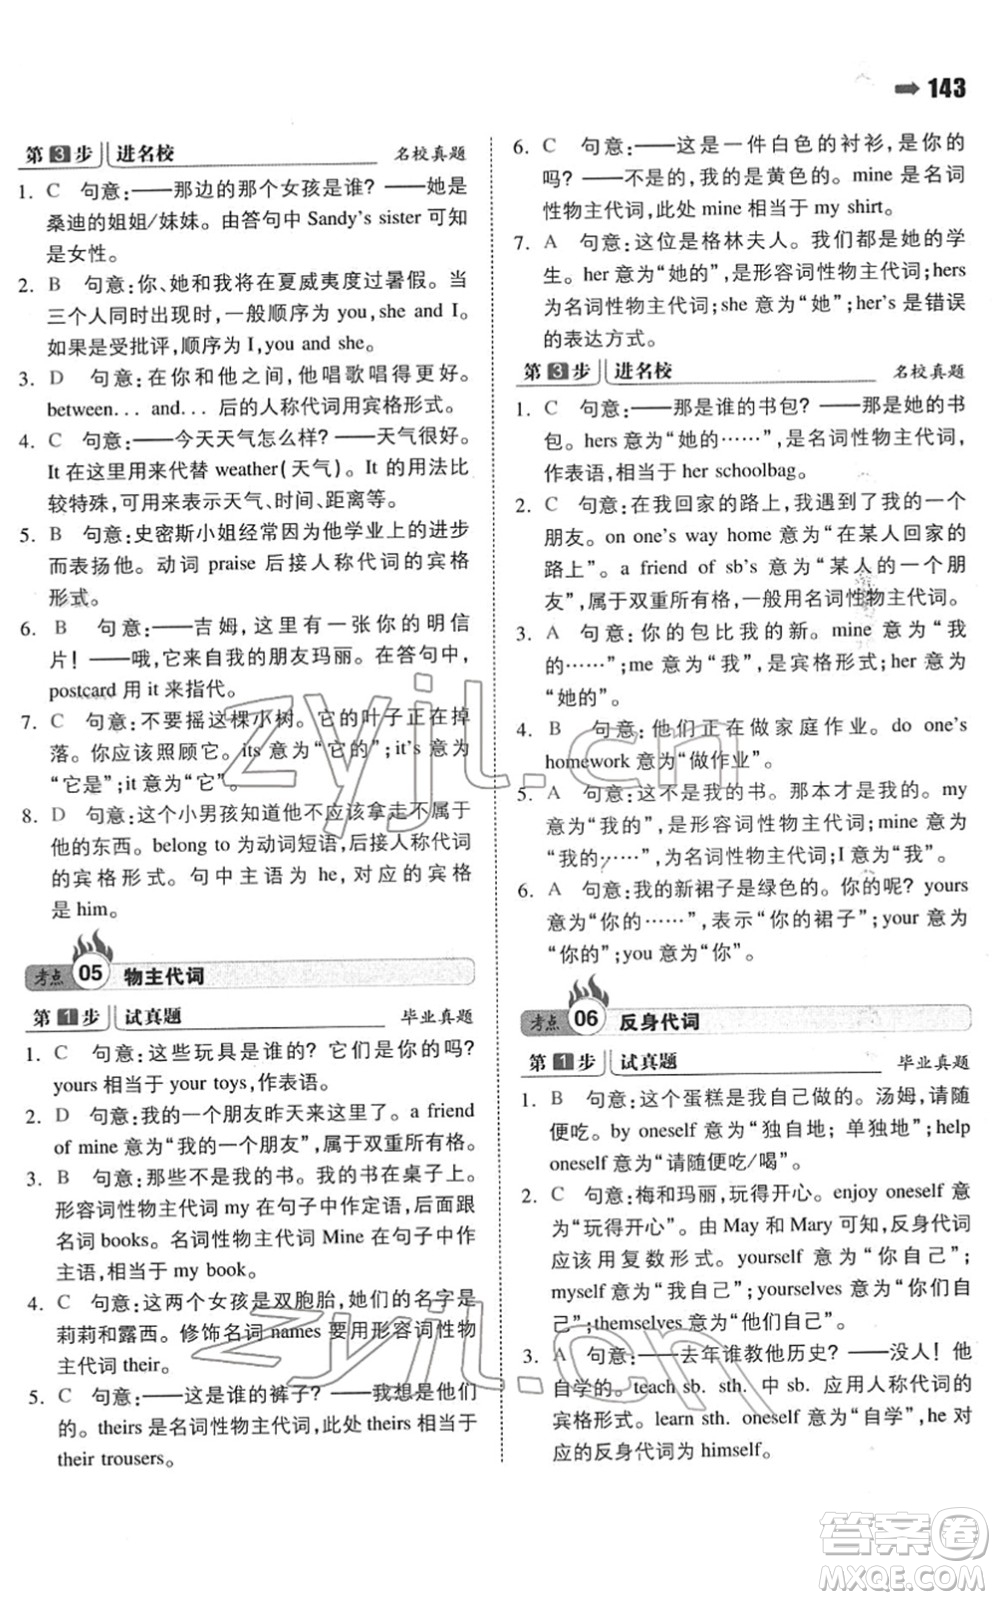 143
第3步 进名校 名校真题
1. C 句意:——那边的那个女孩是谁? ——她是
桑迪的姐姐/妹妹。由答句中 Sandy's sister 可知
是女性。
2. B 句意:你、她和我将在夏威夷度过暑假。当
三个人同时出现时,一般顺序为 you,she and I。
如果是受批评,顺序为 I,you and she。
3. D 句意:在你和他之间,他唱歌唱得更好。
between... and... 后的人称代词用宾格形式。
4. C 句意:——今天天气怎么样? ——天气很好。
It 在这里用来代替 weather(天气)。It 的用法比
较特殊,可用来表示天气、时间、距离等。
5. B 句意:史密斯小姐经常因为他学业上的进步
而表扬他。动词 praise 后接人称代词的宾格
形式。
6. B 句意:——吉姆,这里有一张你的明信
片! ——哦,它来自我的朋友玛丽。在答句中,
postcard 用 it 来指代。
7. C 句意:不要摇这棵小树。它的叶子正在掉
落。你应该照顾它。its 意为“它的”;it's 意为
“它是”;it 意为“它”。
8. D 句意:这个小男孩知道他不应该拿走不属于
他的东西。belong to 为动词短语,后接人称代词
的宾格形式。句中主语为 he,对应的宾格
是 him。
考点 05 物主代词
第1步 试真题 毕业真题
1. C 句意:这些玩具是谁的? 它们是你的吗?
yours 相当于 your toys,作表语。
2. D 句意:我的一个朋友昨天来这里了。a friend
of mine 意为“我的一个朋友”,属于双重所有格。
3. B 句意:那些不是我的书。我的书在桌子上。
形容词性物主代词 my 在句子中作定语,后面跟
名词 books。名词性物主代词 Mine 在句子中作
主语,相当于 my book。
4. C 句意:这两个女孩是双胞胎,她们的名字是
莉莉和露西。修饰名词 names 要用形容词性物主
代词 their。
5. C 句意:——这是谁的裤子? ——我想是他们
的。theirs 是名词性物主代词,此处 theirs 相当于
their trousers。
6. C 句意:——这是一件白色的衬衫,是你的
吗? ——不是的,我的是黄色的。mine 是名词
性物主代词,此处 mine 相当于 my shirt。
7. A 句意:这位是格林夫人。我们都是她的学
生。her 意为“她的”,是形容词性物主代词;hers
为名词性物主代词;she 意为“她”;her's 是错误
的表达方式。
第3步 进名校 名校真题
1. C 句意:——那是谁的书包? ——那是她的书
包。hers 意为“她的……”,是名词性物主代词,
作表语,相当于 her schoolbag。
2. C 句意:在我回家的路上,我遇到了我的一个
朋友。on one's way home 意为“在某人回家的
路上”。a friend of sb's 意为“某人的一个朋
友”,属于双重所有格,一般用名词性物主代词。
3. A 句意:你的包比我的新。mine 意为“我
的……”;me 意为“我”,是宾格形式;her 意为
“她的”。
4. B 句意:他们正在做家庭作业。do one's
homework 意为“做作业”。
5. A 句意:这不是我的书。那本才是我的。my
意为“我的”,是形容词性物主代词;mine 意为
“我的……”,为名词性物主代词;I 意为“我”。
6. A 句意:我的新裙子是绿色的。你的呢? yours
意为“你的……”,表示“你的裙子”;your 意为
“你的”;you 意为“你”。
考点 06 反身代词
第1步 试真题 毕业真题
1. B 句意:这个蛋糕是我自己做的。汤姆,请随
便吃。by oneself 意为“独自地;单独地”;help
oneself 意为“请随便吃/喝”。
2. C 句意:梅和玛丽,玩得开心。enjoy oneself 意
为“玩得开心”。由 May 和 Mary 可知,反身代词
应该用复数形式。yourself 意为“你自己”;
myself 意为“我自己”;yourselves 意为“你们自
己”;themselves 意为“他们自己”。
3. A 句意:——去年谁教他历史? ——没人! 他
自学的。teach sb. sth. 中 sb. 应用人称代词的
宾格形式。learn sth. oneself 意为“自学”,he 对
应的反身代词为 himself。
zyjl.cn
zyjl.cn
答案圈
MXQE.COM